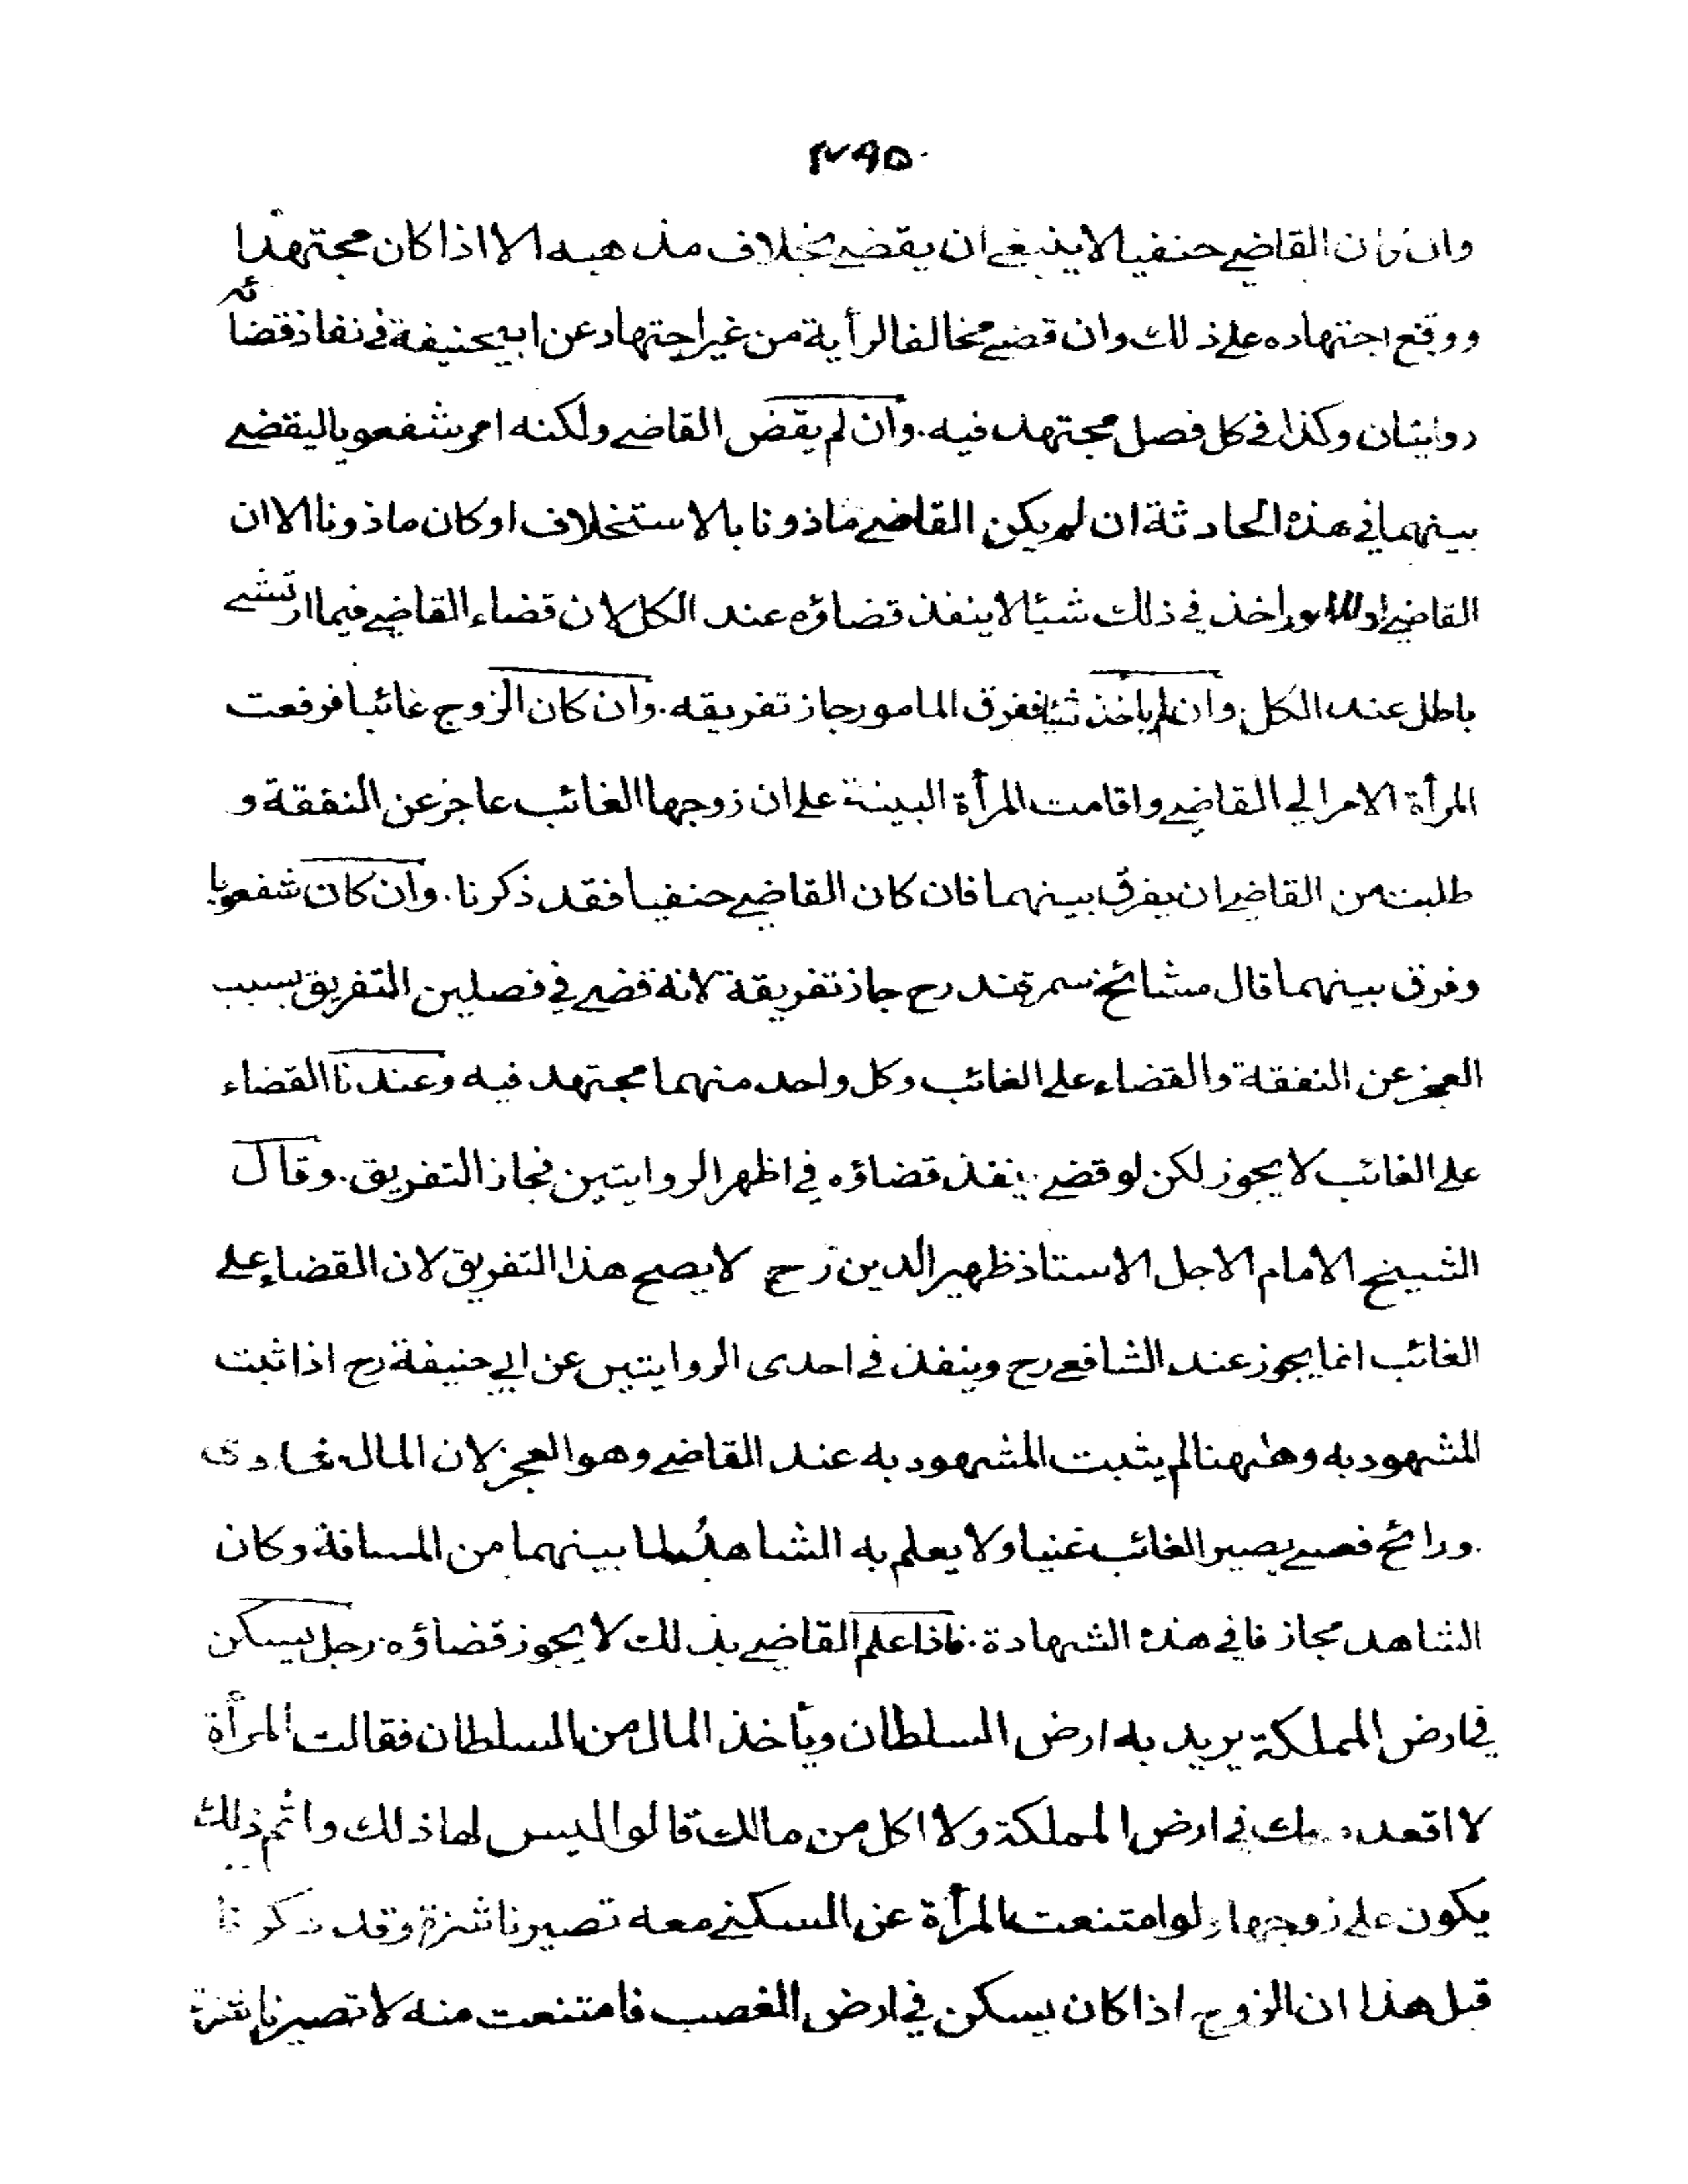 ٢٩٥
وان كان القاضي حنفيا لا ينبغي ان يقضي بخلاف مذهبه الا اذا كان مجتهدا
ووقع اجتهاده على ذلك وان قضى مخالفا لرأية من غير اجتهاد عن ابي حنيفة في نفاذ قضائه
روايتان وكذا في كل فصل مجتهد فيه . وان لم يقض القاضي ولكنه امر شفعويا ليقضي
بينهما في هذه الحادثة ان لم يكن القاضي ماذونا بالاستخلاف او كان ماذونا الا ان
القاضي اخذ في ذلك شيئا لا ينفذ قضاؤه عند الكل لان قضاء القاضي فيما ارتشى
باطل عند الكل . وان لم ياخذ شيئا ففرق المامور جاز تفريقه . وان كان الزوج غائبا فرفعت
المرأة الامر الى القاضي واقامت المرأة البينة على ان زوجها الغائب عاجز عن النفقة و
طلبت من القاضي ان يفرق بينهما فان كان القاضي حنفيا فقد ذكرنا . وان كان شفعويا
وفرق بينهما قال مشائخ سمرقند رح جاز تفريقة لانة قضى في فصلين التفريق بسبب
العجز عن النفقة والقضاء على الغائب وكل واحد منهما مجتهد فيه وعندنا القضاء
على الغائب لا يجوز لكن لو قضى ينفذ قضاؤه في اظهر الروايتين فجاز التفريق . وقال
الشيخ الامام الاجل الاستاذ ظهير الدين رح لا يصح هذا التفريق لان القضاء على
الغائب انما يجوز عند الشافعي رح وينفذ في احدى الروايتين عن ابي حنيفة رح اذا ثبت
المشهود به وههنا لم يثبت المشهود به عند القاضي وهو العجز لان المال غادى
ورائح فعسى يصير الغائب غنيا ولا يعلم به الشاهد لما بينهما من المسافة وكان
الشاهد مجازفا في هذه الشهادة . فاذا علم القاضي بذلك لا يجوز قضاؤه . رجل يسكن
في ارض المملكة يريد به ارض السلطان ويأخذ المال من السلطان فقالت المرأة
لا اقعد معك في ارض المملكة ولا اكل من مالك قالوا ليس لها ذلك واثم ذلك
يكون على زوجها ولو امتنعت المرأة عن السكنى معه تصير ناشزة وقد ذكرنا
قبل هذا ان الزوج اذا كان يسكن في ارض الغصب فامتنعت منه لا تصير ناشزة